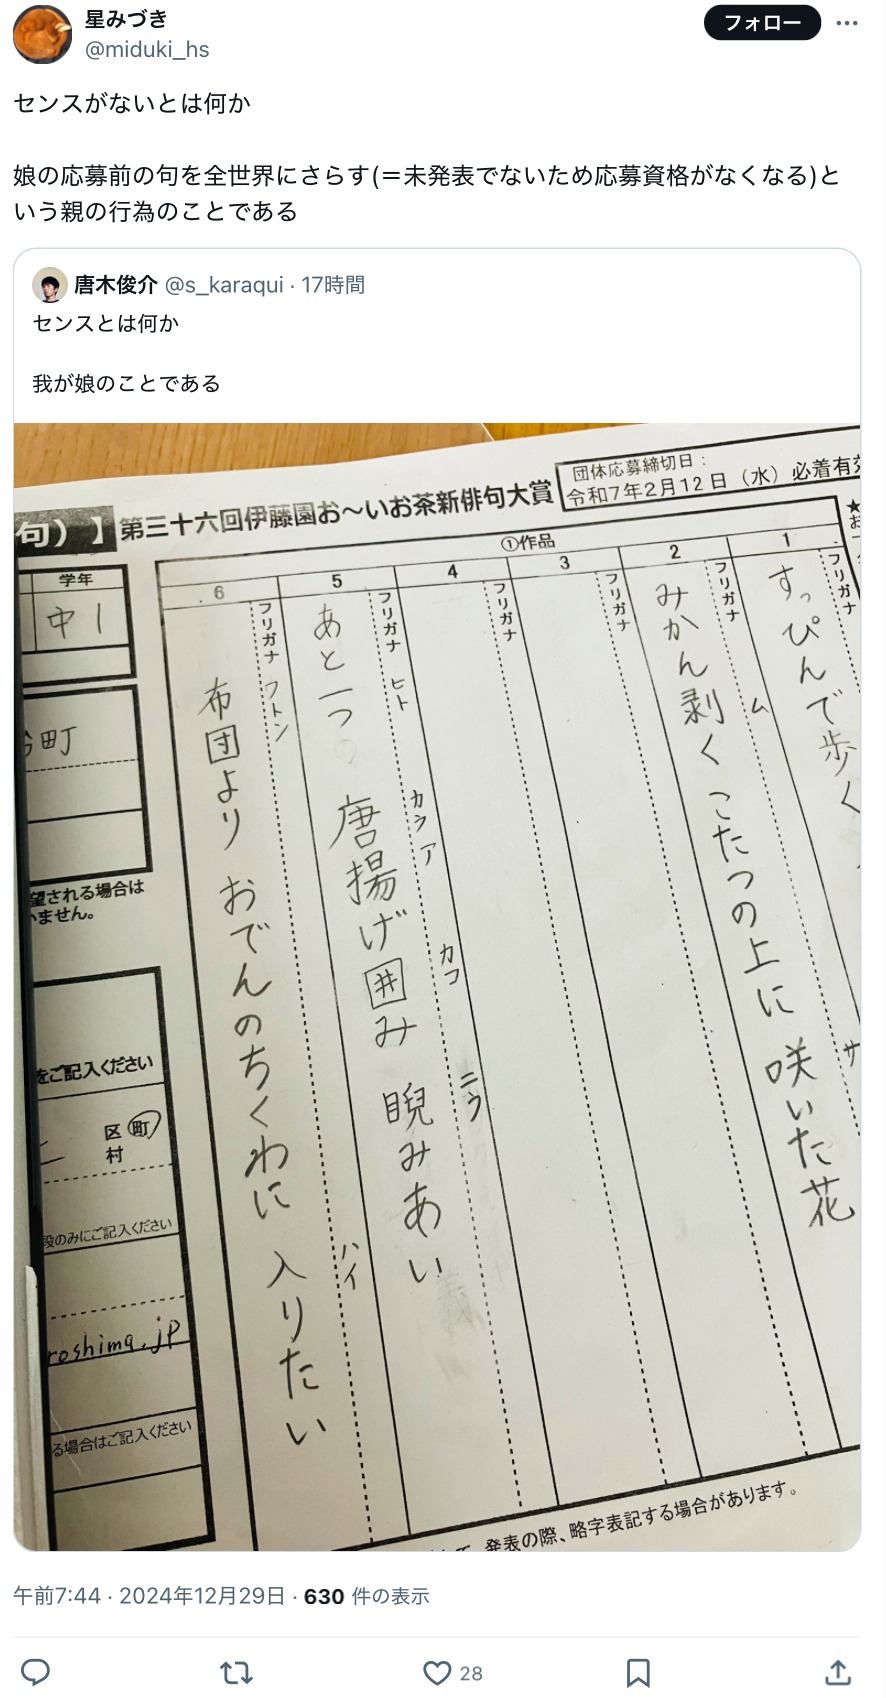 星みづき
@miduki_hs
フォロー
センスがないとは何か
娘の応募前の句を全世界にさらす(＝未発表でないため応募資格がなくなる)と
いう親の行為のことである
唐木俊介 @s_karaqui · 17時間
センスとは何か
我が娘のことである
団体応募締切日：
令和7年2月12日（水）必着有効
句）】第三十六回伊藤園お〜いお茶新俳句大賞
①作品
1
フリガナ
すっぴんで歩く
サ
2
フリガナ
ム
みかん剥く こたつの上に 咲いた花
3
フリガナ
4
フリガナ
5
フリガナ
ヒト
カラア
カコ
ニラ
あと一つの 唐揚げ囲み 睨みあい
6
フリガナ
フトン
ハイ
布団より おでんのちくわに 入りたい
学年
中1
町
望される場合は
いません。
をご記入ください
区町
村
段のみにご記入ください
roshima.jp
る場合はご記入ください
発表の際、略字表記する場合があります。
午前7:44 · 2024年12月29日 · 630 件の表示
28